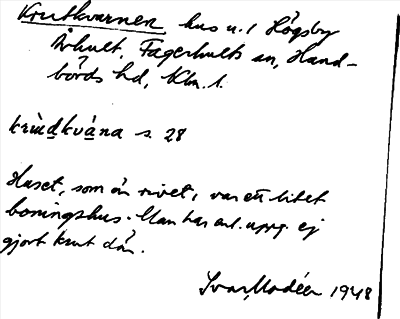 Krutkvarnen, hus u. / Högsby
Århult, Fagerhults sn, Hand-
börds hd, Klm. l.
krùdkvána s. 28
Huset, som är rivet, var ett litet
boningshus. Man har enl. uppg. ej
gjort krut där.
Ivar Modéer 1948